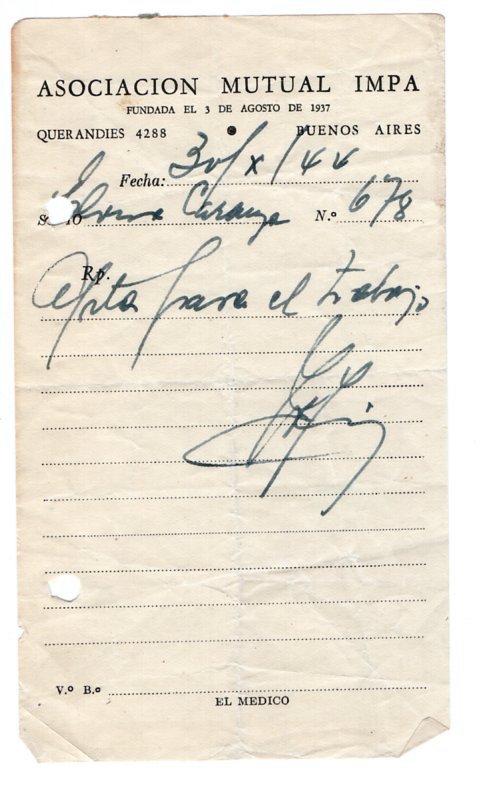 ASOCIACION MUTUAL IMPA
FUNDADA EL 3 DE AGOSTO DE 1937
QUERANDIES 4288 • BUENOS AIRES
Fecha: 30/X/44
N.º 678
Rp.
Apta para el trabajo
V.º B.º
EL MEDICO